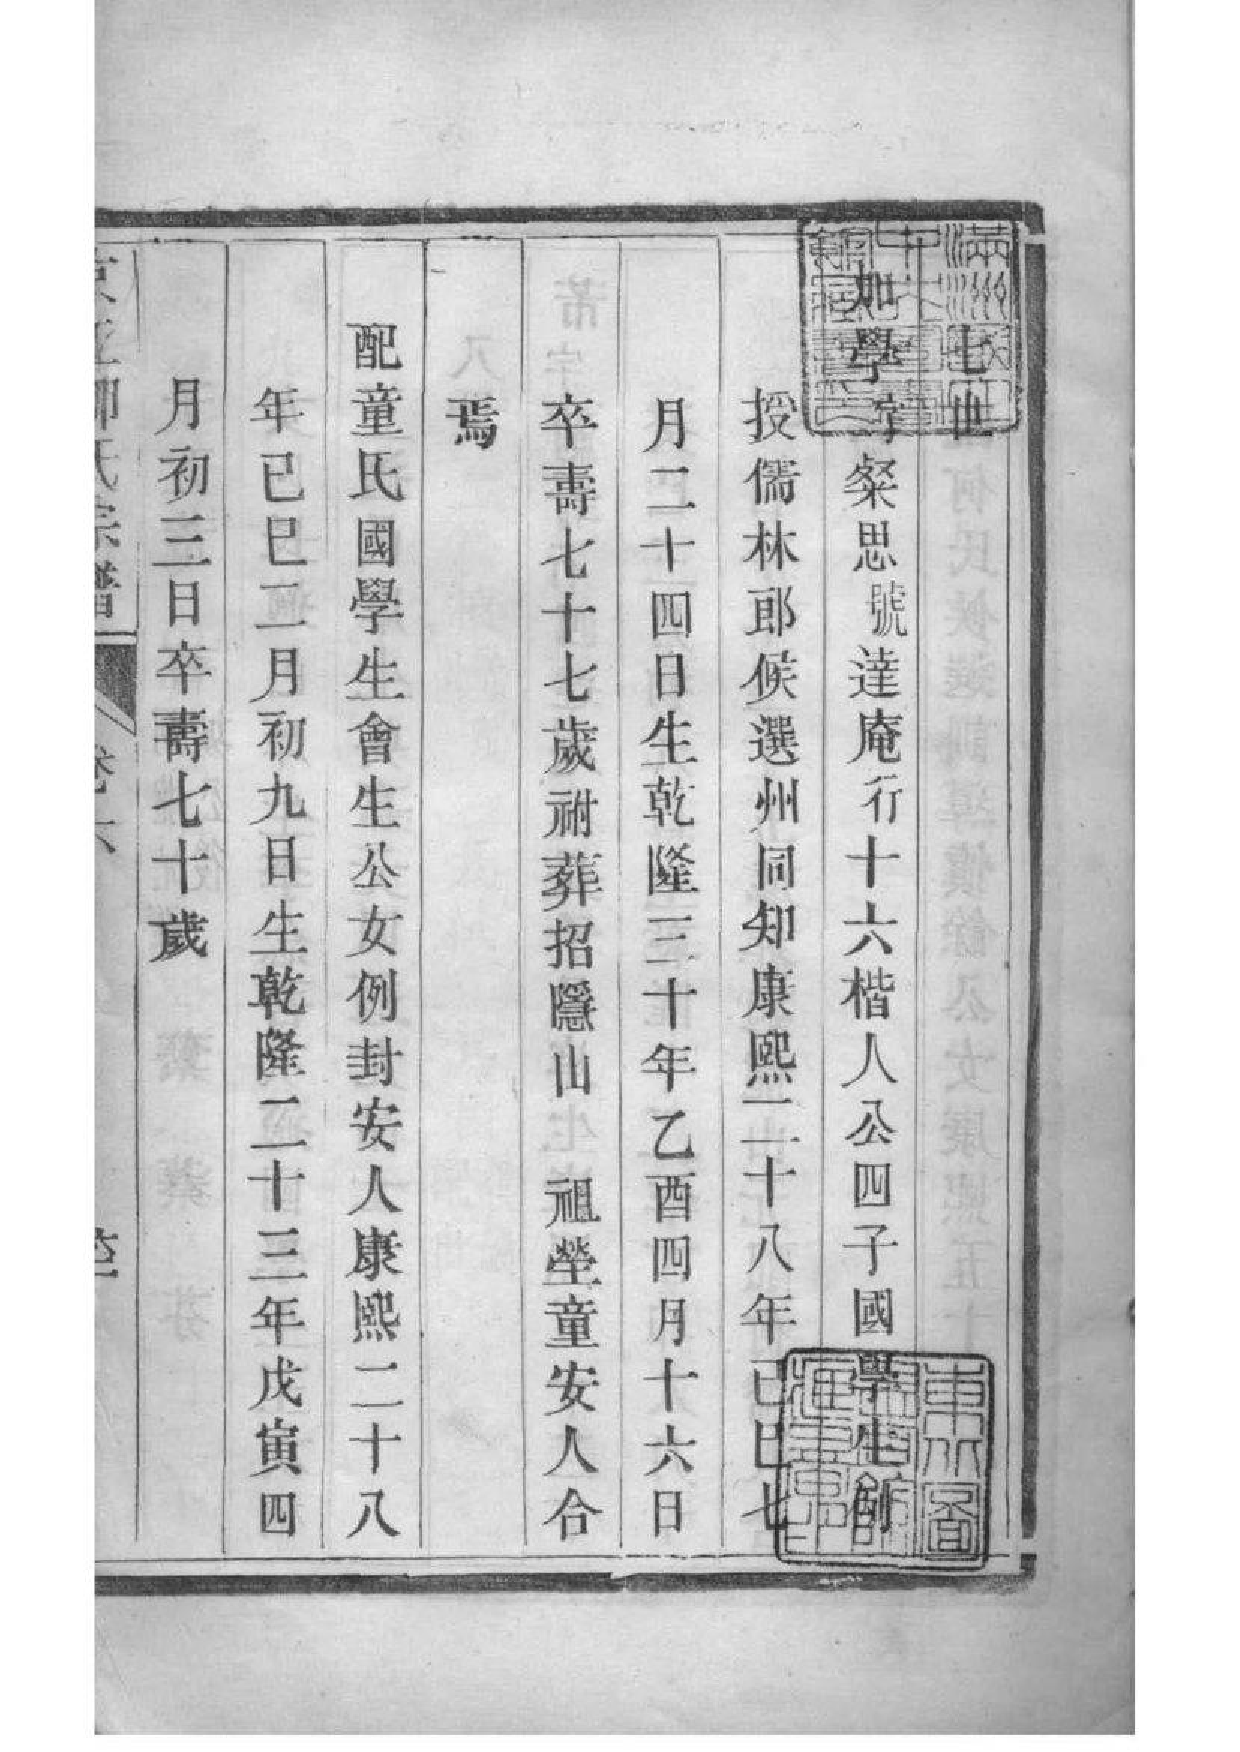 七世
加學字粲思號達庵行十六楷人公四子國學生例
授儒林郎候選州同知康熙二十八年己巳七
月二十四日生乾隆三十年乙酉四月十六日
卒壽七十七歲祔葬招隱山祖塋童安人合
焉
配童氏國學生會生公女例封安人康熙二十八
年己巳二月初九日生乾隆二十三年戊寅四
月初三日卒壽七十歲
京江柳氏宗譜 卷六